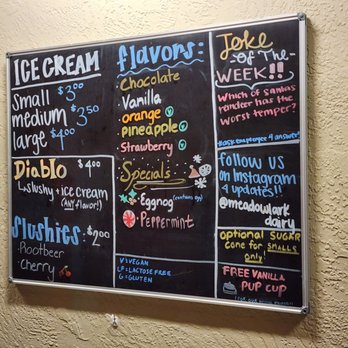 ICE CREAM
Small $3.00
medium $3.50
large $4.00
Diablo $4.00
Slushy + ICE CREAM
(ANY flavor!)
Slushies: $2.00
Rootbeer
Cherry
flavors:
Chocolate
Vanilla
orange V
pineapple V
Strawberry V
Specials
Eggnog (contains egg)
Peppermint
V=VEGAN
LF=LACTOSE FREE
G=GLUTEN
Joke
Of The
WEEK!!
Which of santas
reindeer has the
worst temper?
*ask employee 4 answer!
follow US
on Instagram
4 updates!!
@meadowlark
dairy
optional SUGAR
cone for SMALLS
only!
FREE VANILLA
PUP CUP